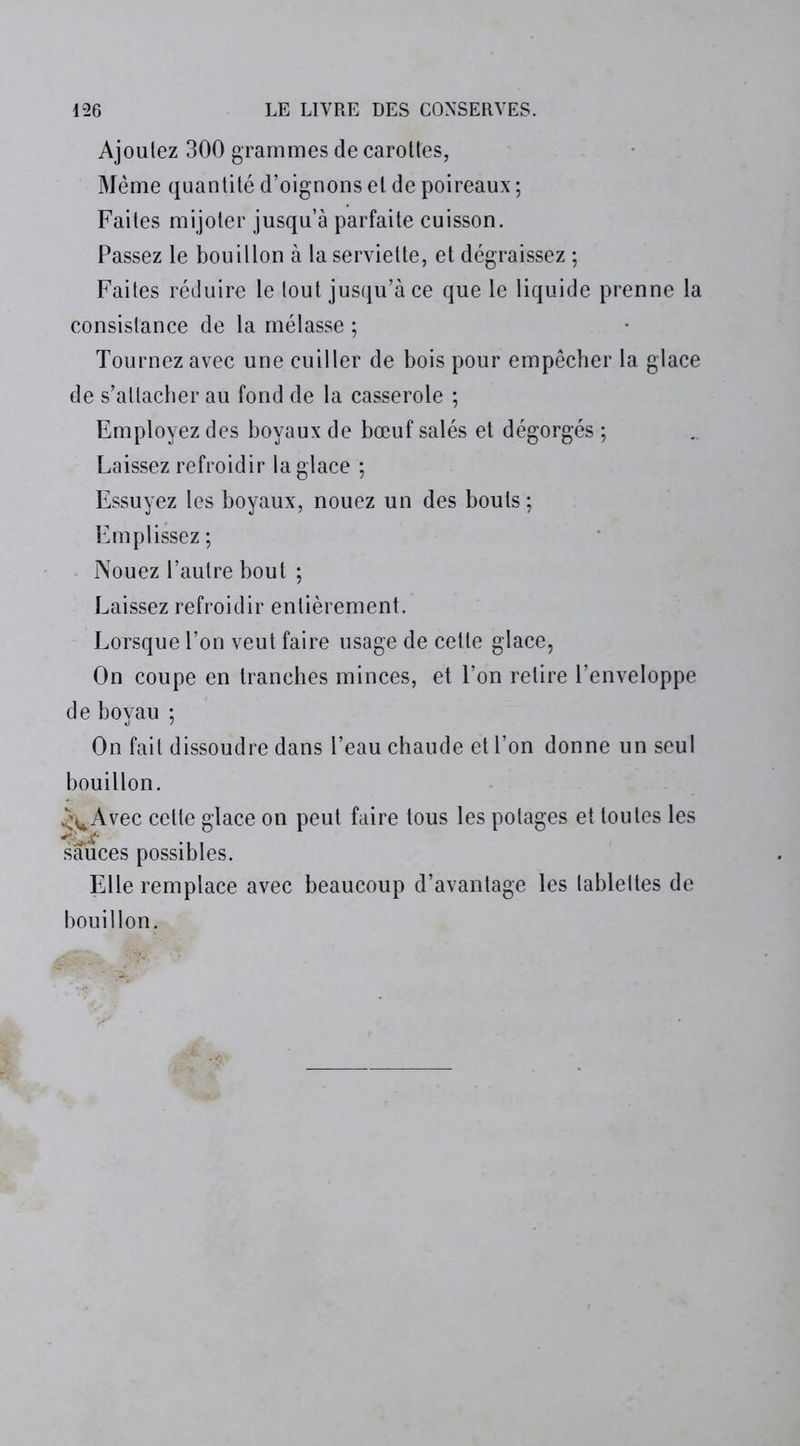 126 LE LIVRE DES CONSERVES.
Ajoutez 300 grammes de carottes,
Même quantité d'oignons et de poireaux ;
Faites mijoter jusqu'à parfaite cuisson.
Passez le bouillon à la serviette, et dégraissez ;
Faites réduire le tout jusqu'à ce que le liquide prenne la
consistance de la mélasse ;
Tournez avec une cuiller de bois pour empêcher la glace
de s'attacher au fond de la casserole ;
Employez des boyaux de bœuf salés et dégorgés ;
Laissez refroidir la glace ;
Essuyez les boyaux, nouez un des bouts ;
Emplissez ;
Nouez l'autre bout ;
Laissez refroidir entièrement.
Lorsque l'on veut faire usage de cette glace,
On coupe en tranches minces, et l'on retire l'enveloppe
de boyau ;
On fait dissoudre dans l'eau chaude et l'on donne un seul
bouillon.
Avec cette glace on peut faire tous les potages et toutes les
sauces possibles.
Elle remplace avec beaucoup d'avantage les tablettes de
bouillon.